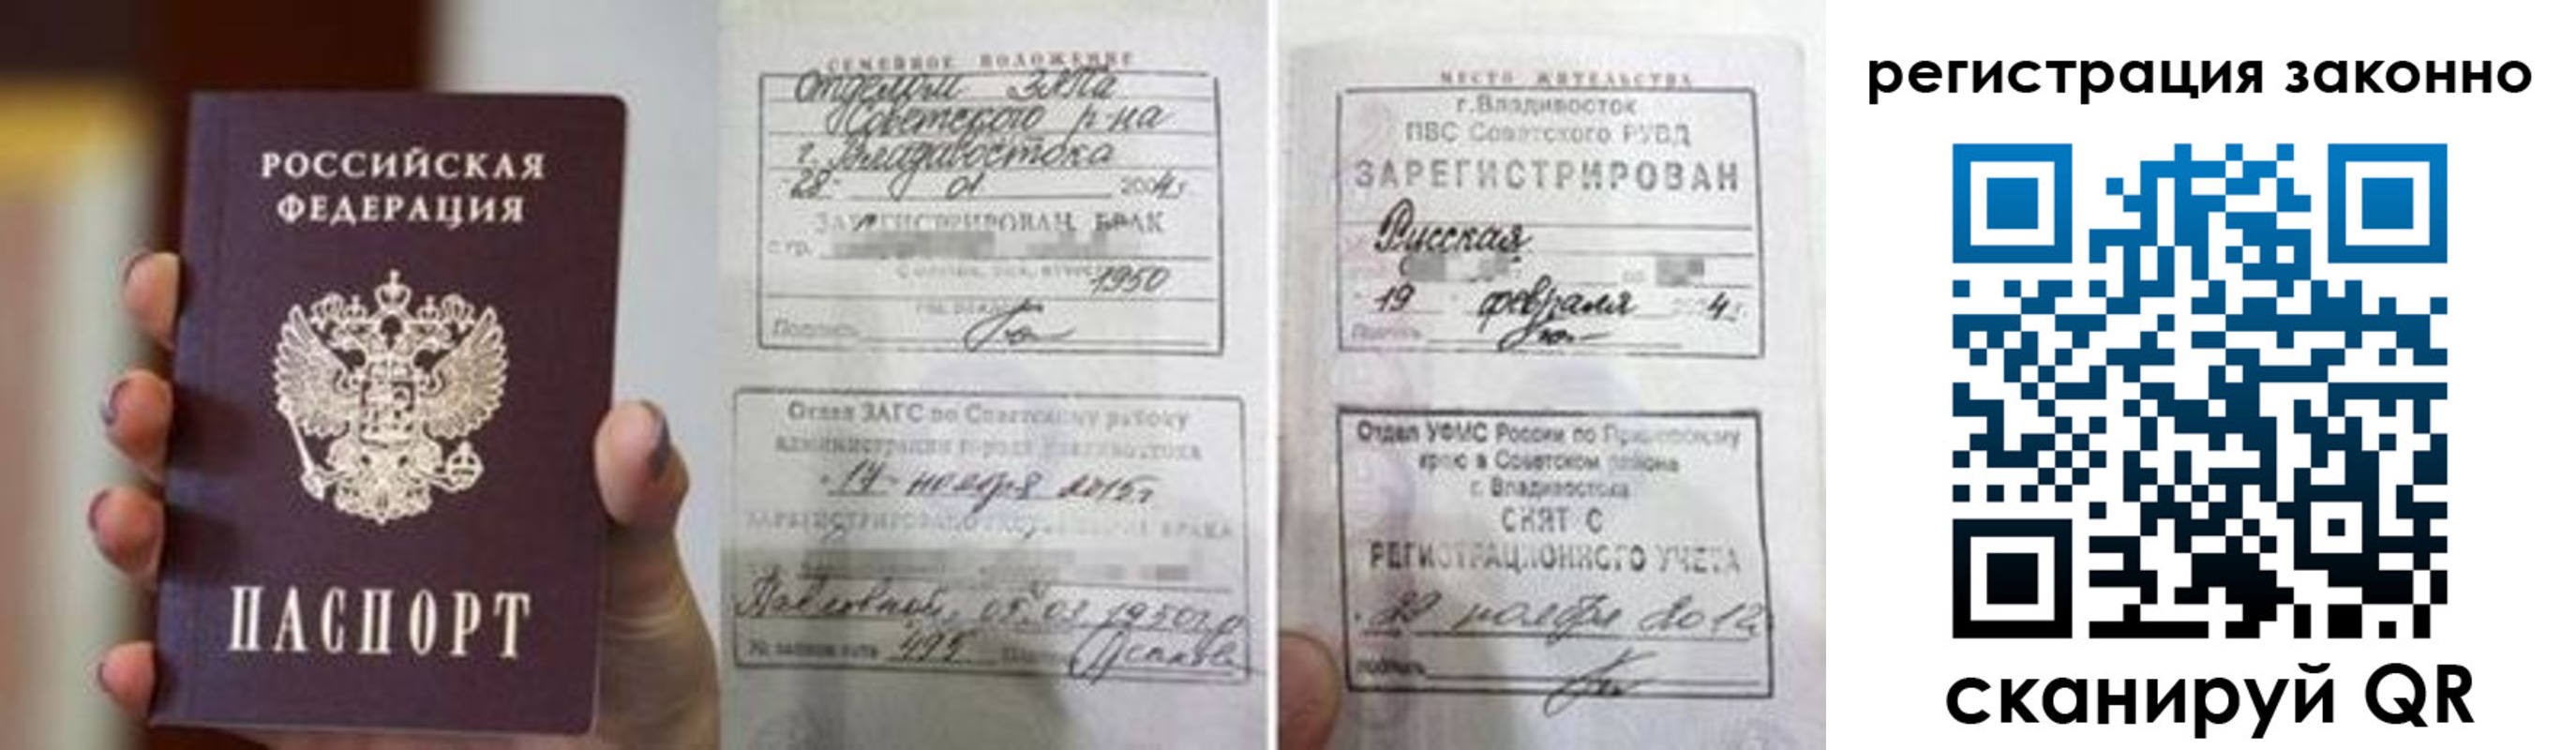 РОССИЙСКАЯ
ФЕДЕРАЦИЯ
ПАСПОРТ
СЕМЕЙНОЕ ПОЛОЖЕНИЕ
Отделом ЗАГСа
Советского р-на
г. Владивостока
"28" 01 2004г.
ЗАРЕГИСТРИРОВАН БРАК
с гр.
1950
Подпись
Отдел ЗАГС по Советскому району
администрации города Владивостока
"17" ноября 2015г
БРАКА
Павловной, 05.03.1950г.р
№ записи акта 495
МЕСТО ЖИТЕЛЬСТВА
г.Владивосток
ПВС Советского РУВД
ЗАРЕГИСТРИРОВАН
Русская
19 февраля 4г
Подпись
Отдел УФМС России по Приморскому
краю в Советском районе
г. Владивостока
СНЯТ С
РЕГИСТРАЦИОННОГО УЧЕТА
ноября 2012
подпись
регистрация законно
сканируй QR